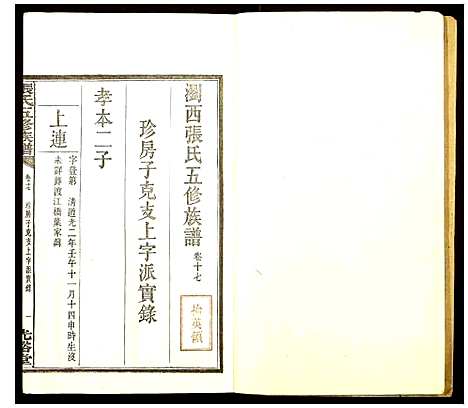 瀏西張氏五修族譜 卷十七
珍房子克支上字派實錄
孝本二子
上連
字登第 清道光二年壬午十一月十四申時生沒
未詳葬渡江橋葉家𡊢
張氏五修族譜 卷十七 珍房子克支上字派實錄 一 光裕堂